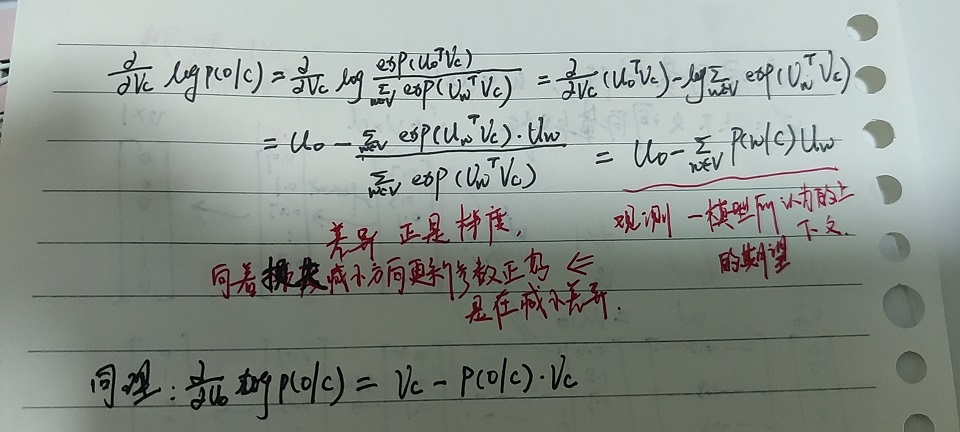 ∂/∂Vc log p(o|c) = ∂/∂Vc log exp(Uo^T Vc) / Σ_{w∈V} exp(Uw^T Vc) = ∂/∂Vc (Uo^T Vc) - log Σ_{w∈V} exp(Uw^T Vc)
= Uo - Σ_{w∈V} exp(Uw^T Vc)·Uw / Σ_{w∈V} exp(Uw^T Vc) = Uo - Σ_{w∈V} P(w|c) Uw
差异正是梯度,
观测 - 模型所认为的上下文的期望
向着 减小方向更新参数正好 ⇐
是在减小差异.
同理: ∂/∂Uo log p(o|c) = Vc - P(o|c)·Vc